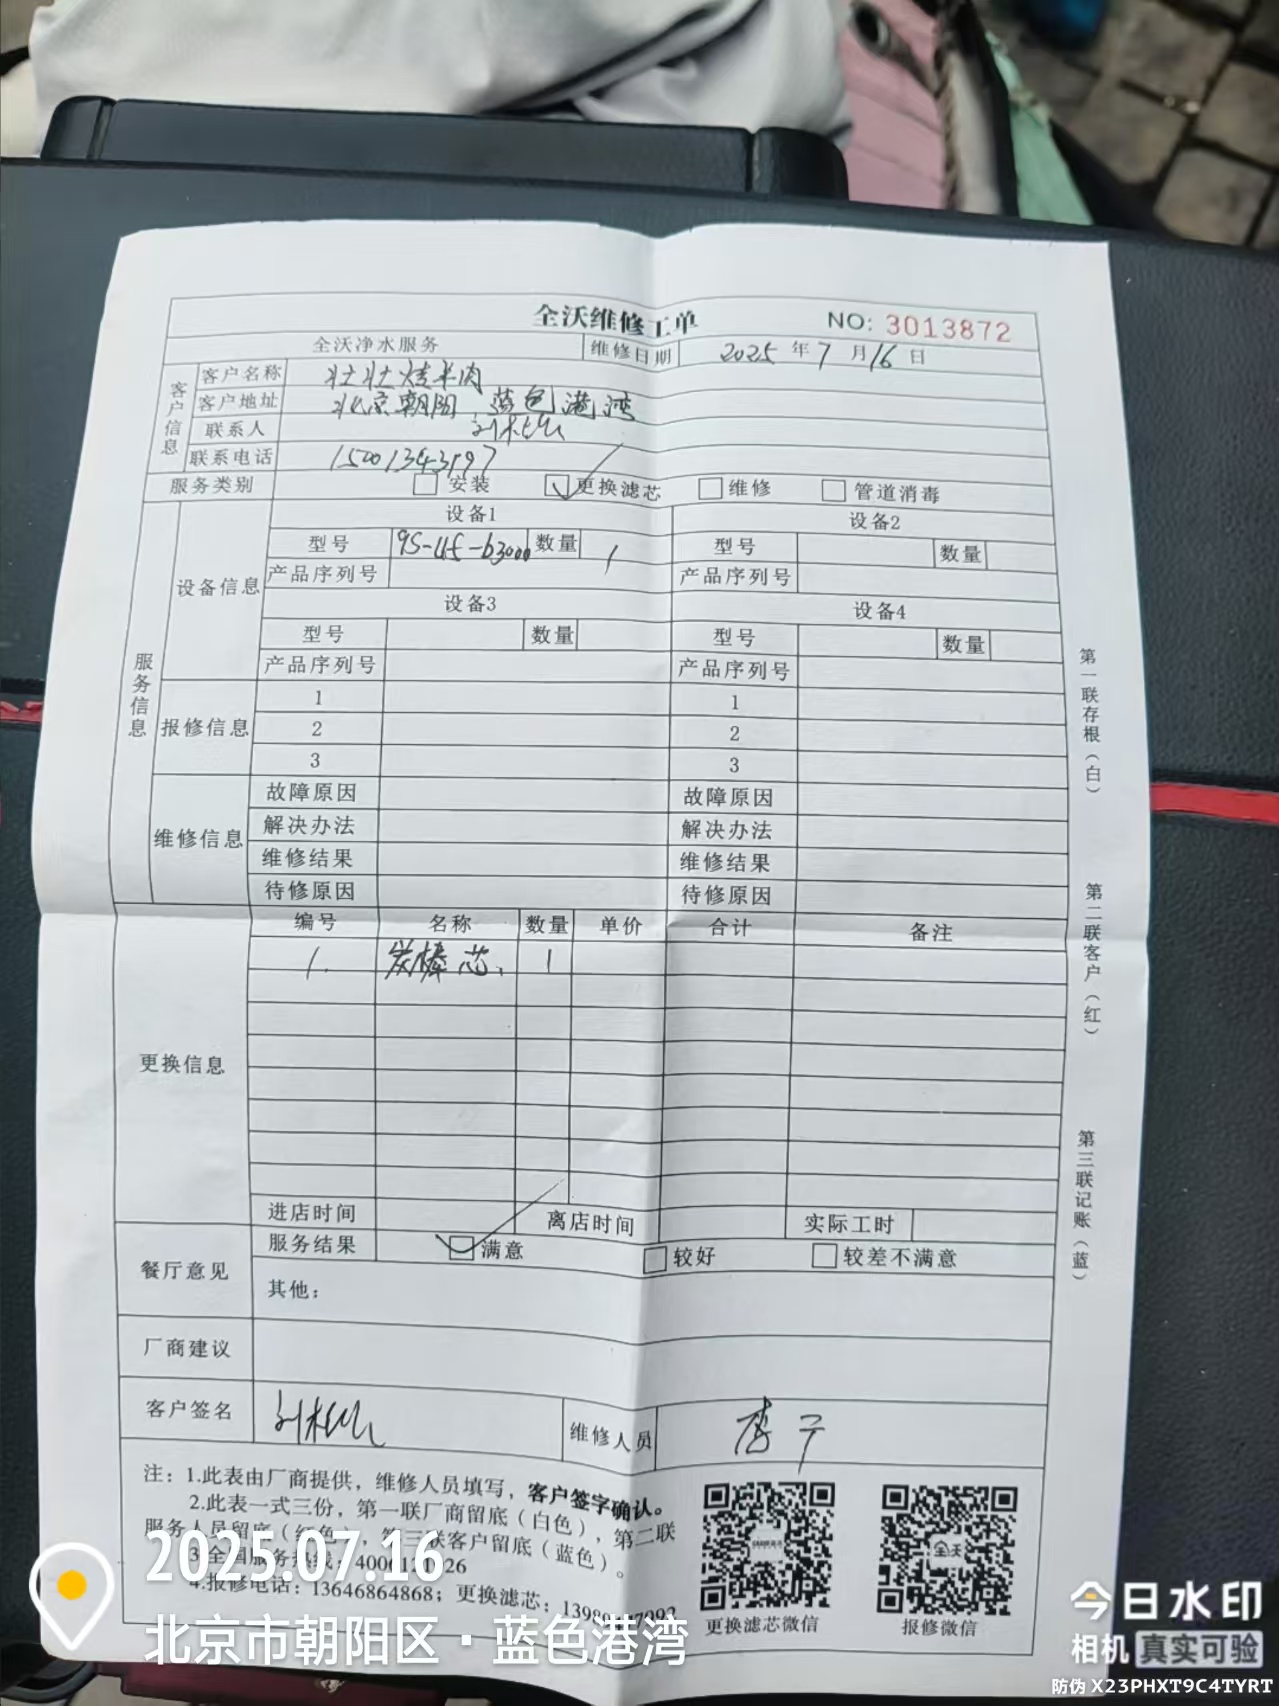 全沃维修工单 NO: 3013872
全沃净水服务 维修日期 2025 年 7 月 16 日
客户信息
客户名称 壮壮烤羊肉
客户地址 北京朝阳 蓝色港湾
联系人
联系电话
服务类别 安装 更换滤芯 维修 管道消毒
服务信息
设备信息
设备1 设备2
型号 数量 1 型号 数量
产品序列号 产品序列号
设备3 设备4
型号 数量 型号 数量
产品序列号 产品序列号
报修信息
1 1
2 2
3 3
维修信息
故障原因 故障原因
解决办法 解决办法
维修结果 维修结果
待修原因 待修原因
更换信息
编号 名称 数量 单价 合计 备注
1. 炭棒芯 1
进店时间 离店时间 实际工时
餐厅意见
服务结果 满意 较好 较差不满意
其他：
厂商建议
客户签名 维修人员 李宁
注：1.此表由厂商提供，维修人员填写，客户签字确认。
2.此表一式三份，第一联厂商留底（白色），第二联
服务人员留底（红色），第三联客户留底（蓝色）。
3.全国服务热线
4.报修电话：13646864868；更换滤芯：
更换滤芯微信 报修微信
全沃
第一联存根（白）
第二联客户（红）
第三联记账（蓝）
2025.07.16
北京市朝阳区·蓝色港湾
今日水印
相机 真实可验
防伪 X23PHXT9C4TYRT